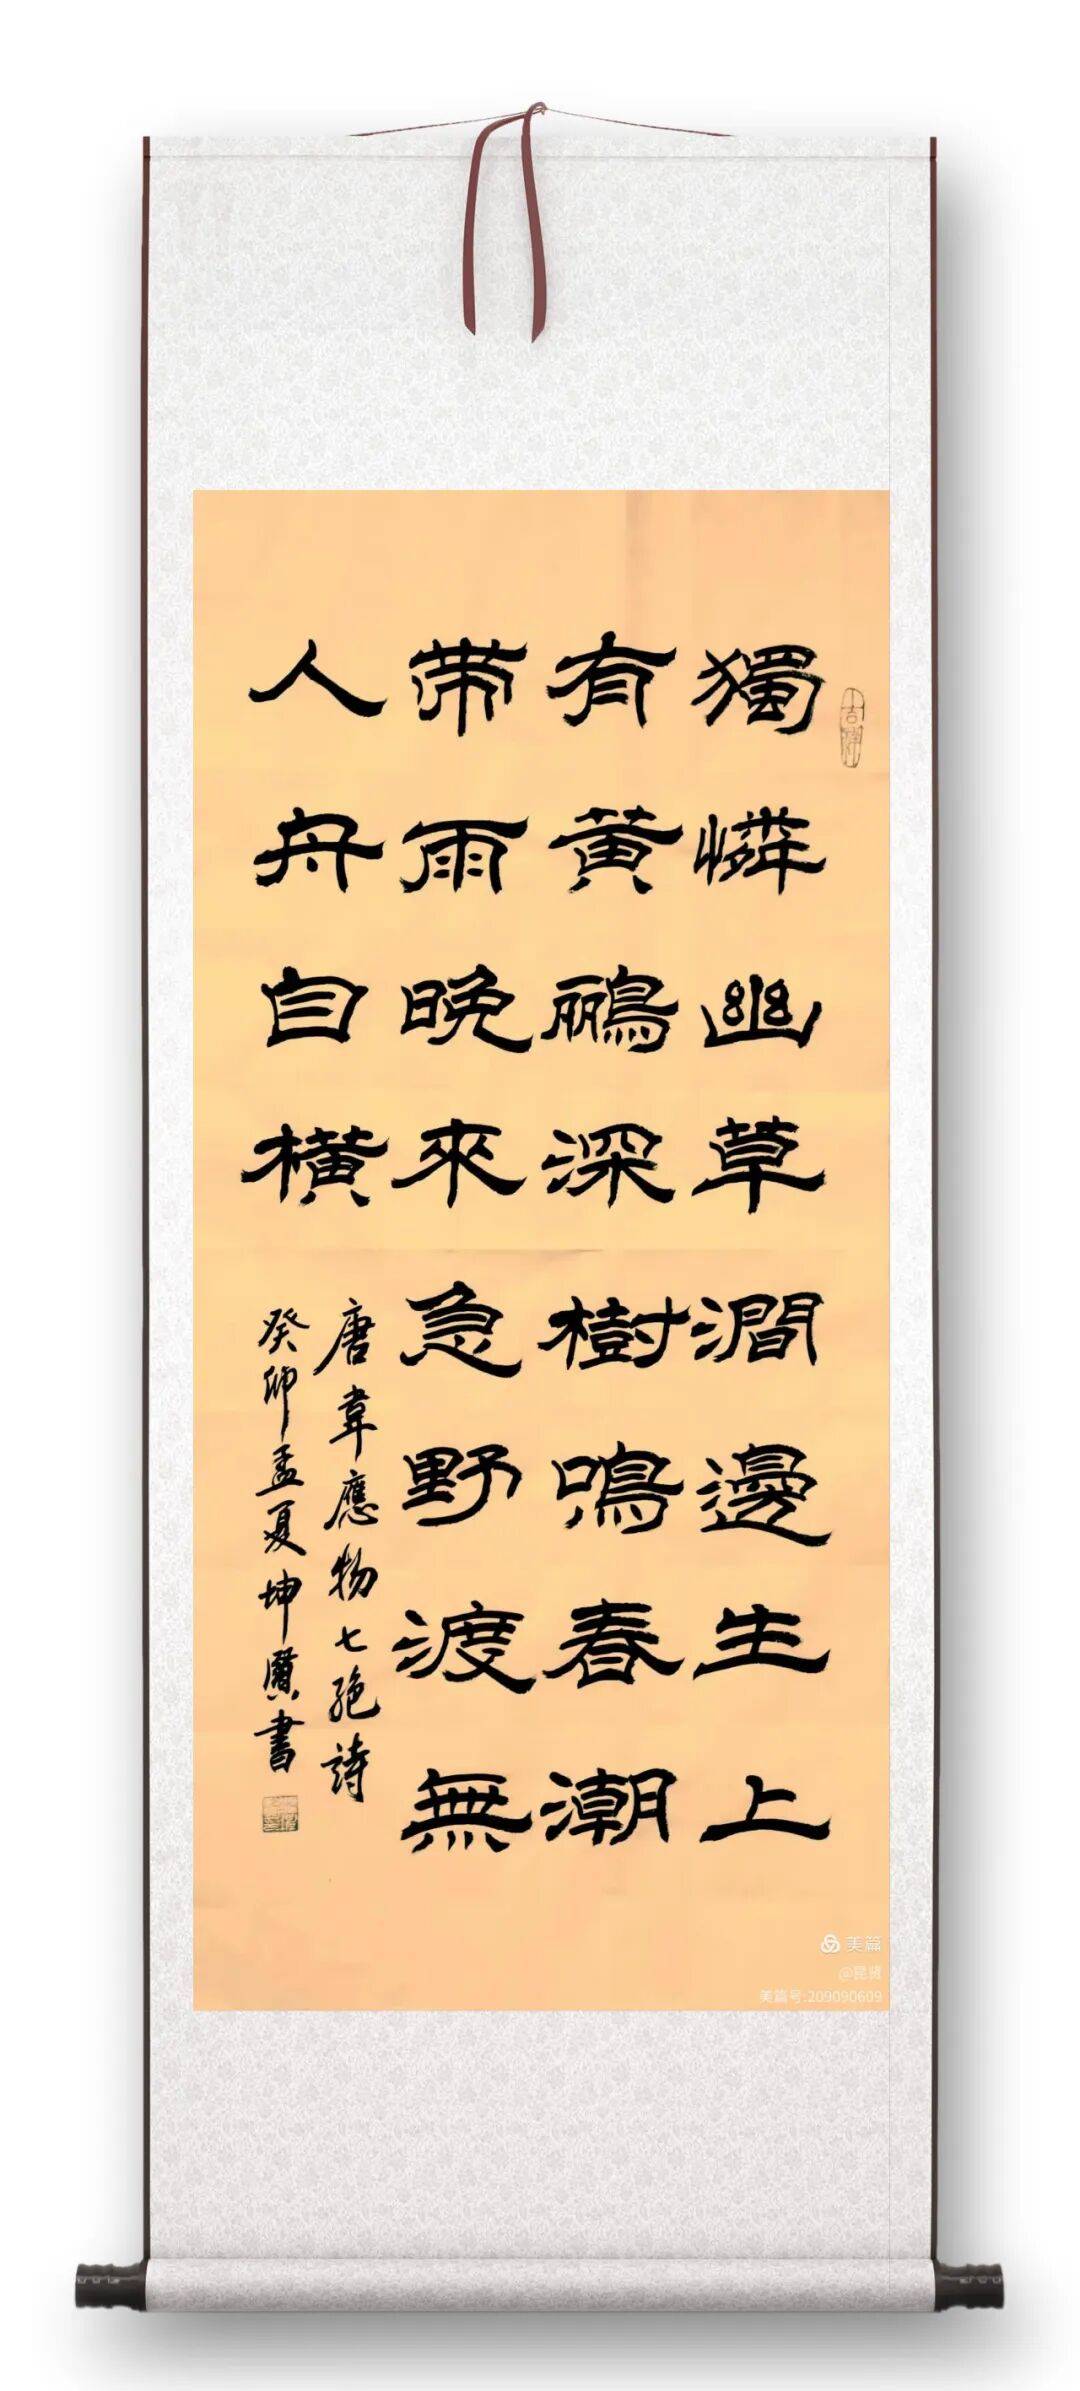 獨憐幽草澗邊生上
有黃鸝深樹鳴春潮
帶雨晚來急野渡無
人舟自橫
唐韋應物七絕詩
癸卯孟夏坤賢書
美篇
@昆贤
美篇号:209090609